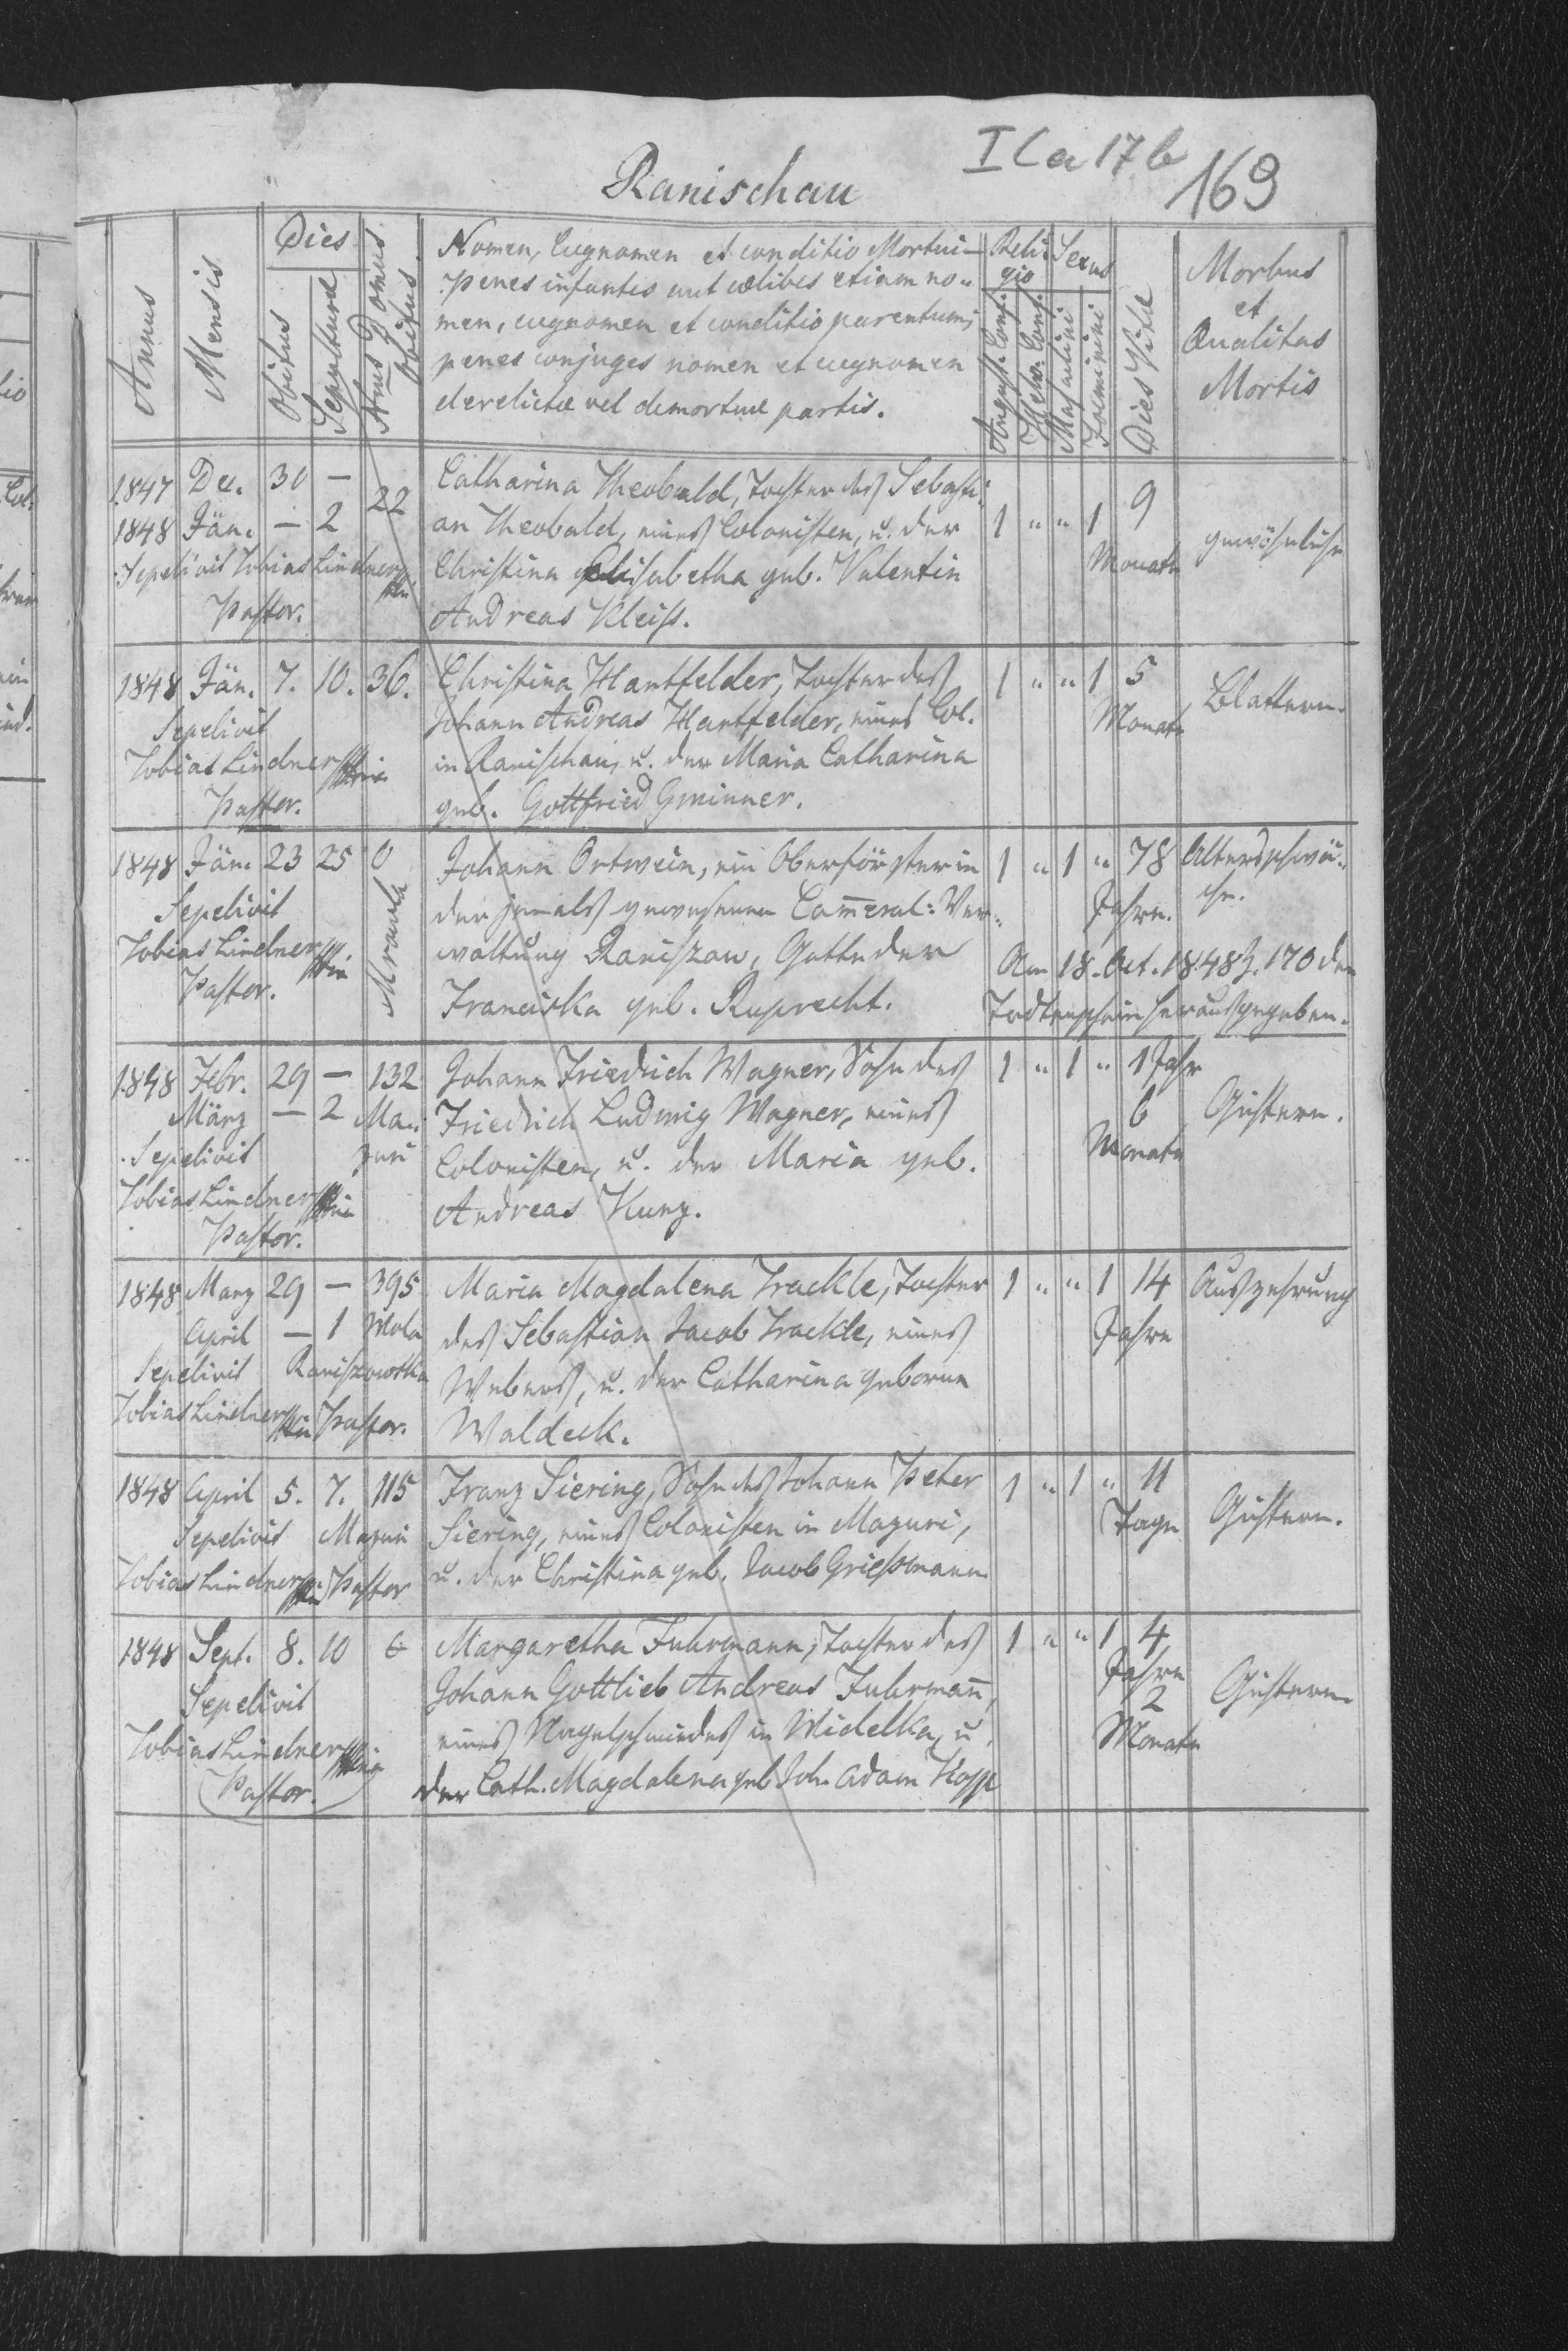 I C a 17 b
169
Ranischau
Annus
Mensis
Dies
Obitus
Sepulturæ
Nrus Domus Obitus
Nomen, Cugnomen et conditio Mortui
penes infantes aut cœlibes etiam no-
men, cugnomen et conditio parentum;
penes conjuges nomen et cugnomen
derelictæ vel demortuæ partis.
Reli-
gio
August. Conf.
Helv. Conf.
Sexus
Masculini
Foeminini
Dies Vitæ
Morbus
et
Qualitas
Mortis
1847 Dec. 30 — 22
1848 Jän. — 2
Sepelivit Tobias Lindner
Pastor.
Catharina Theobald, Tochter des Sebasti-
an Theobald, eines Colonisten, u. der
Christina Elisabetha geb. Valentin
Andreas Kleiss.
1 " " 1 9
Monate
gewöhnliche
1848 Jän. 7. 10. 36.
Sepelivit
Tobias Lindner
Pastor.
Christina Hantfelder, Tochter des
Johann Andreas Hantfelder, eines Col.
in Ranischau, u. der Maria Catharina
geb. Gottfried Gminner.
1 " " 1 5
Monate
Blattern.
1848 Jän. 23 25 0
Mrowla
Sepelivit
Tobias Lindner
Pastor.
Johann Ortwein, ein Oberförster in
der jemals gewesenen Cameral-Ver-
waltung Raniszau, Gatte der
Franciska geb. Ruprecht.
1 " 1 " 78
Jahre.
Altersschwä-
che.
Am 18. Oct. 1848 Z. 170 den
Todtenschein herausgegeben.
1848 Febr. 29 — 132
März — 2 Ma-
zuri
Sepelivit
Tobias Lindner
Pastor.
Johann Friedrich Wagner, Sohn des
Friedrich Ludwig Wagner, eines
Colonisten, u. der Maria geb.
Andreas Kunz.
1 " 1 " 1 Jahr
6
Monate
Gichtern.
1848 Marz 29 — 395
April — 1 Wola
Sepelivit Raniszowska
Tobias Lindner Pastor.
Maria Magdalena Trackle, Tochter
des Sebastian Jacob Trackle, eines
Webers, u. der Catharina geborne
Waldeck.
1 " " 1 14
Jahre
Auszehrung
1848 April 5. 7. 115
Sepelivit Mazuri
Tobias Lindner Pastor
Franz Siering, Sohn des Johann Peter
Siering, eines Colonisten in Mazuri,
u. der Christina geb. Jacob Griessmann
1 " 1 " 11
Tage
Gichtern.
1848 Sept. 8. 10 6
Sepelivit
Tobias Lindner
Pastor.
Margaretha Fuhrmann, Tochter des
Johann Gottlieb Andreas Fuhrmañ,
eines Nagelschmiedes in Widelka, u.
der Cath. Magdalena geb. Joh. Adam Kopp
1 " " 1 4
Jahre
2
Monate
Gichtern